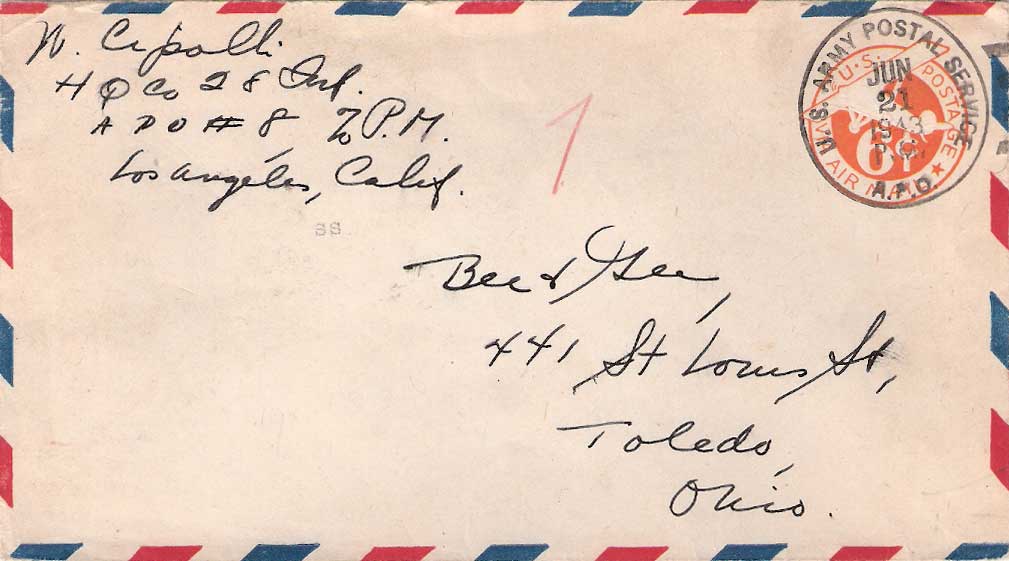 N. Cipolli
HQ Co 28 Inf.
APO # 8 % P.M.
Los Angeles, Calif.
U.S. ARMY POSTAL SERVICE
JUN
21
1943
A.P.O.
U.S. POSTAGE
6¢
VIA AIR MAIL
1
SS
Bee & Gee,
441 St Louis St,
Toledo,
Ohio.